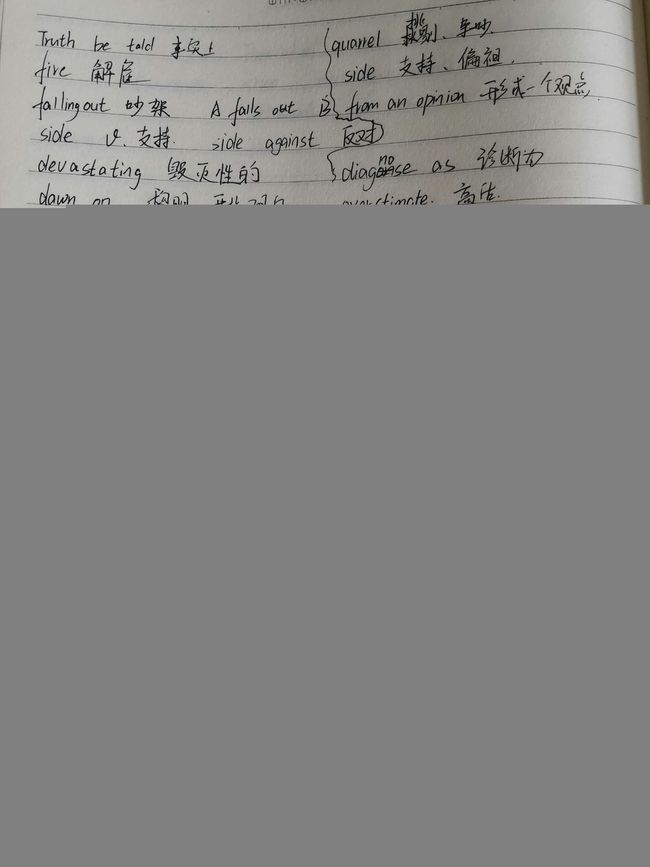 Truth be told 事实上
fire 解雇
falling out 吵架 A falls out B
side v. 支持. side against 反对
devastating 毁灭性的
dawn on
quarrel 挑剔、争吵.
side 支持、偏袒.
from an opinion 形成一个观点.
diagnose as 诊断为
overestimate. 高估.